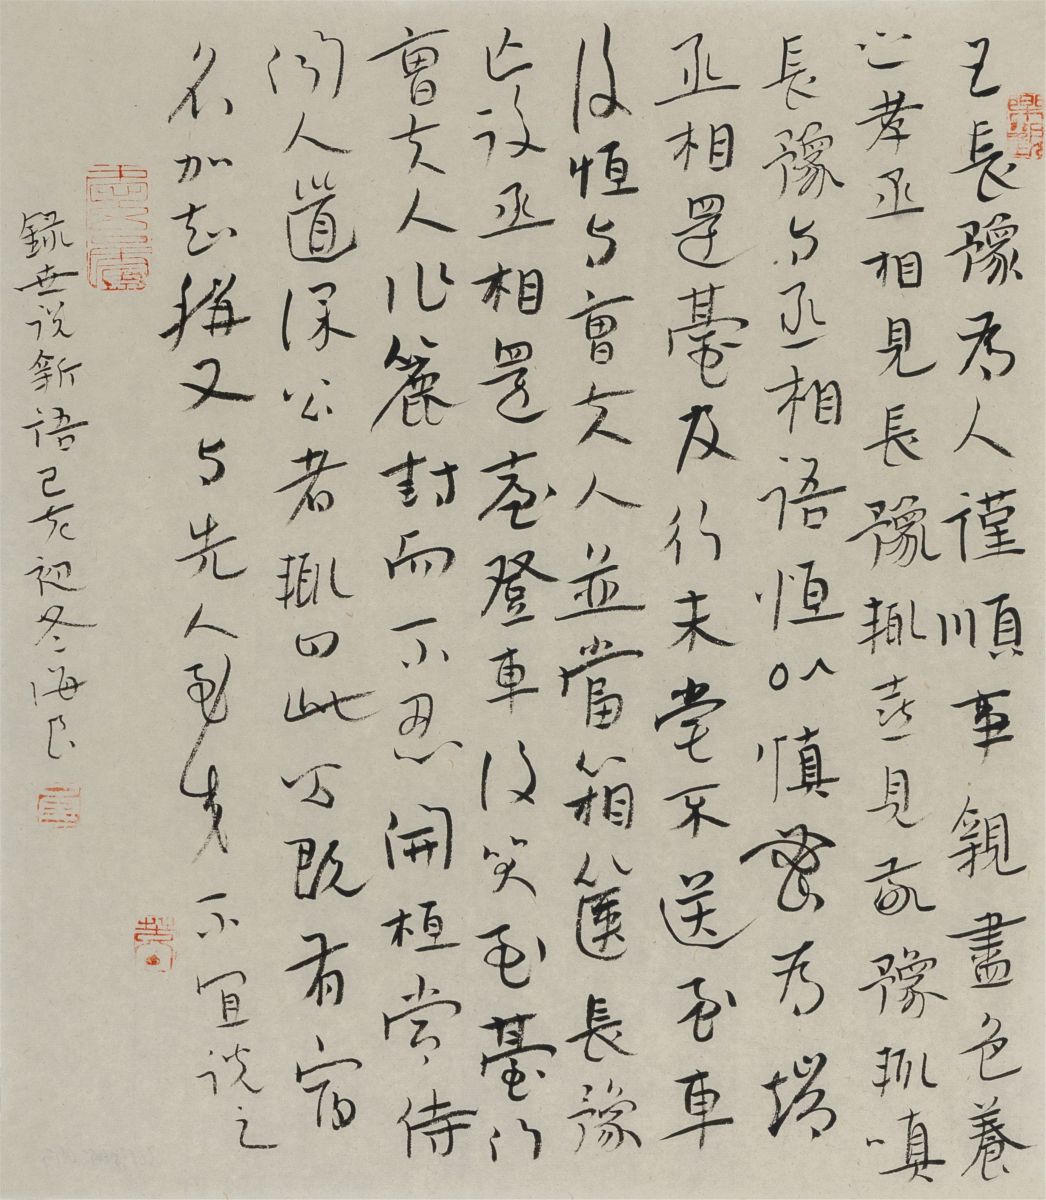 王長豫为人謹順事親盡色養
之孝丞相見長豫輒喜見敬豫輒嗔
長豫与丞相語恒以慎密为端
丞相還臺及行未嘗不送至車
後恒与曹夫人並當箱篋長豫
亡後丞相還臺登車後哭至臺门
曹夫人作簏封而不忍開桓常侍
闻人道深公者輒曰此公既有宿
名加知稱又与先人至交不宜説之
録世说新语己亥初冬海良